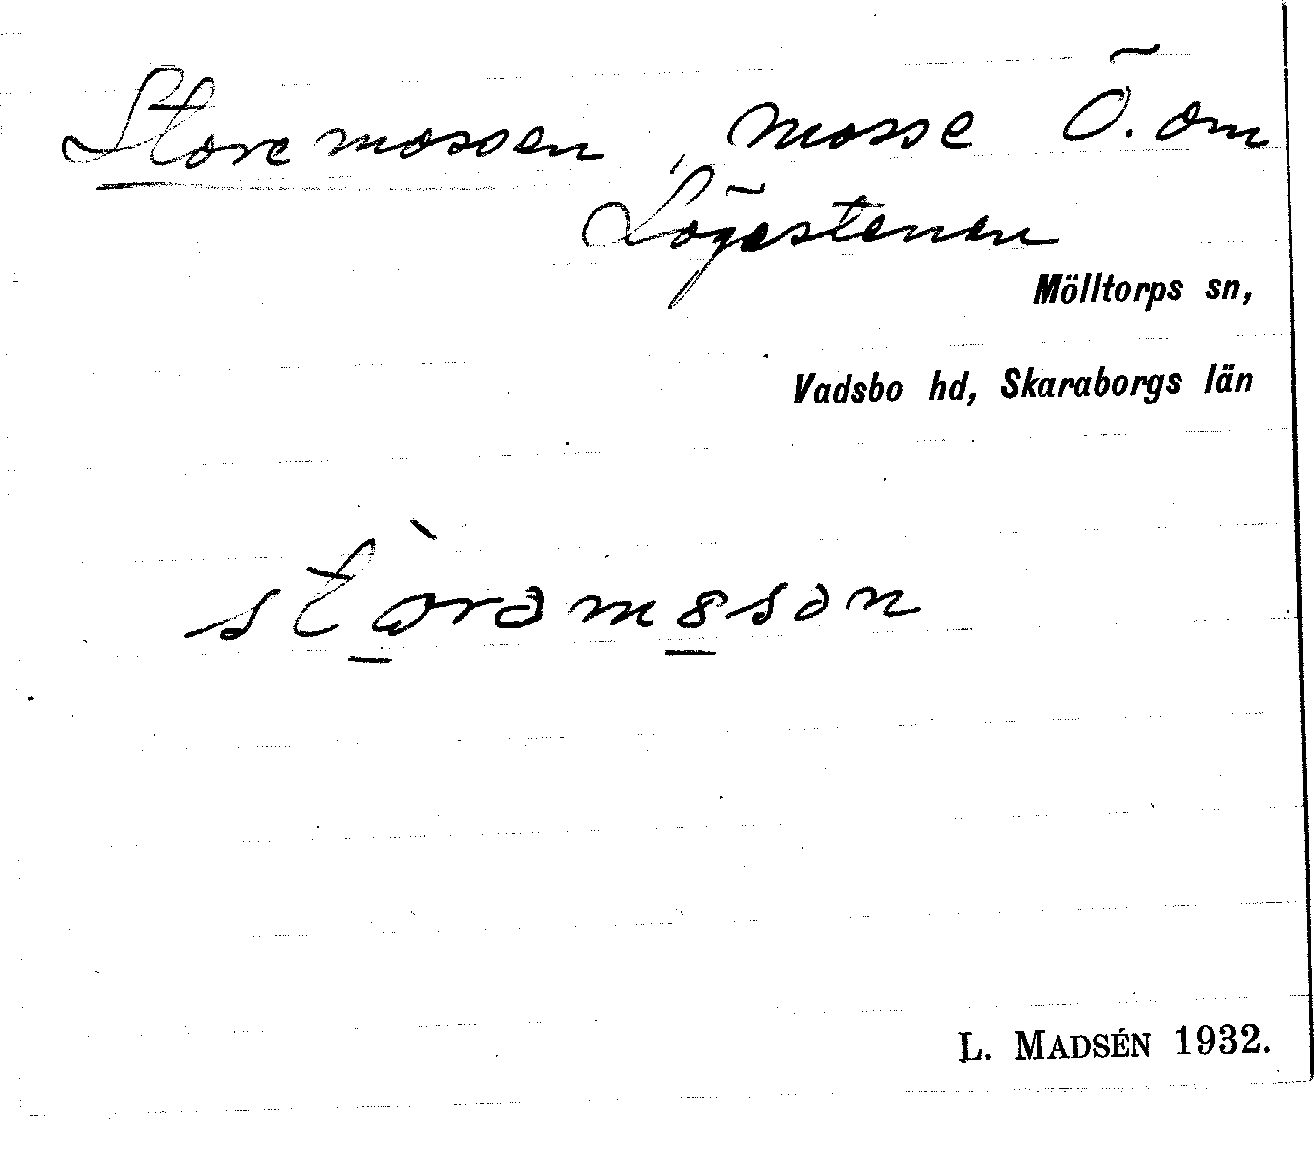 Storemossen, mosse Ö. om
Lögestenen
Mölltorps sn,
Vadsbo hd, Skaraborgs län
L. MADSÉN 1932.